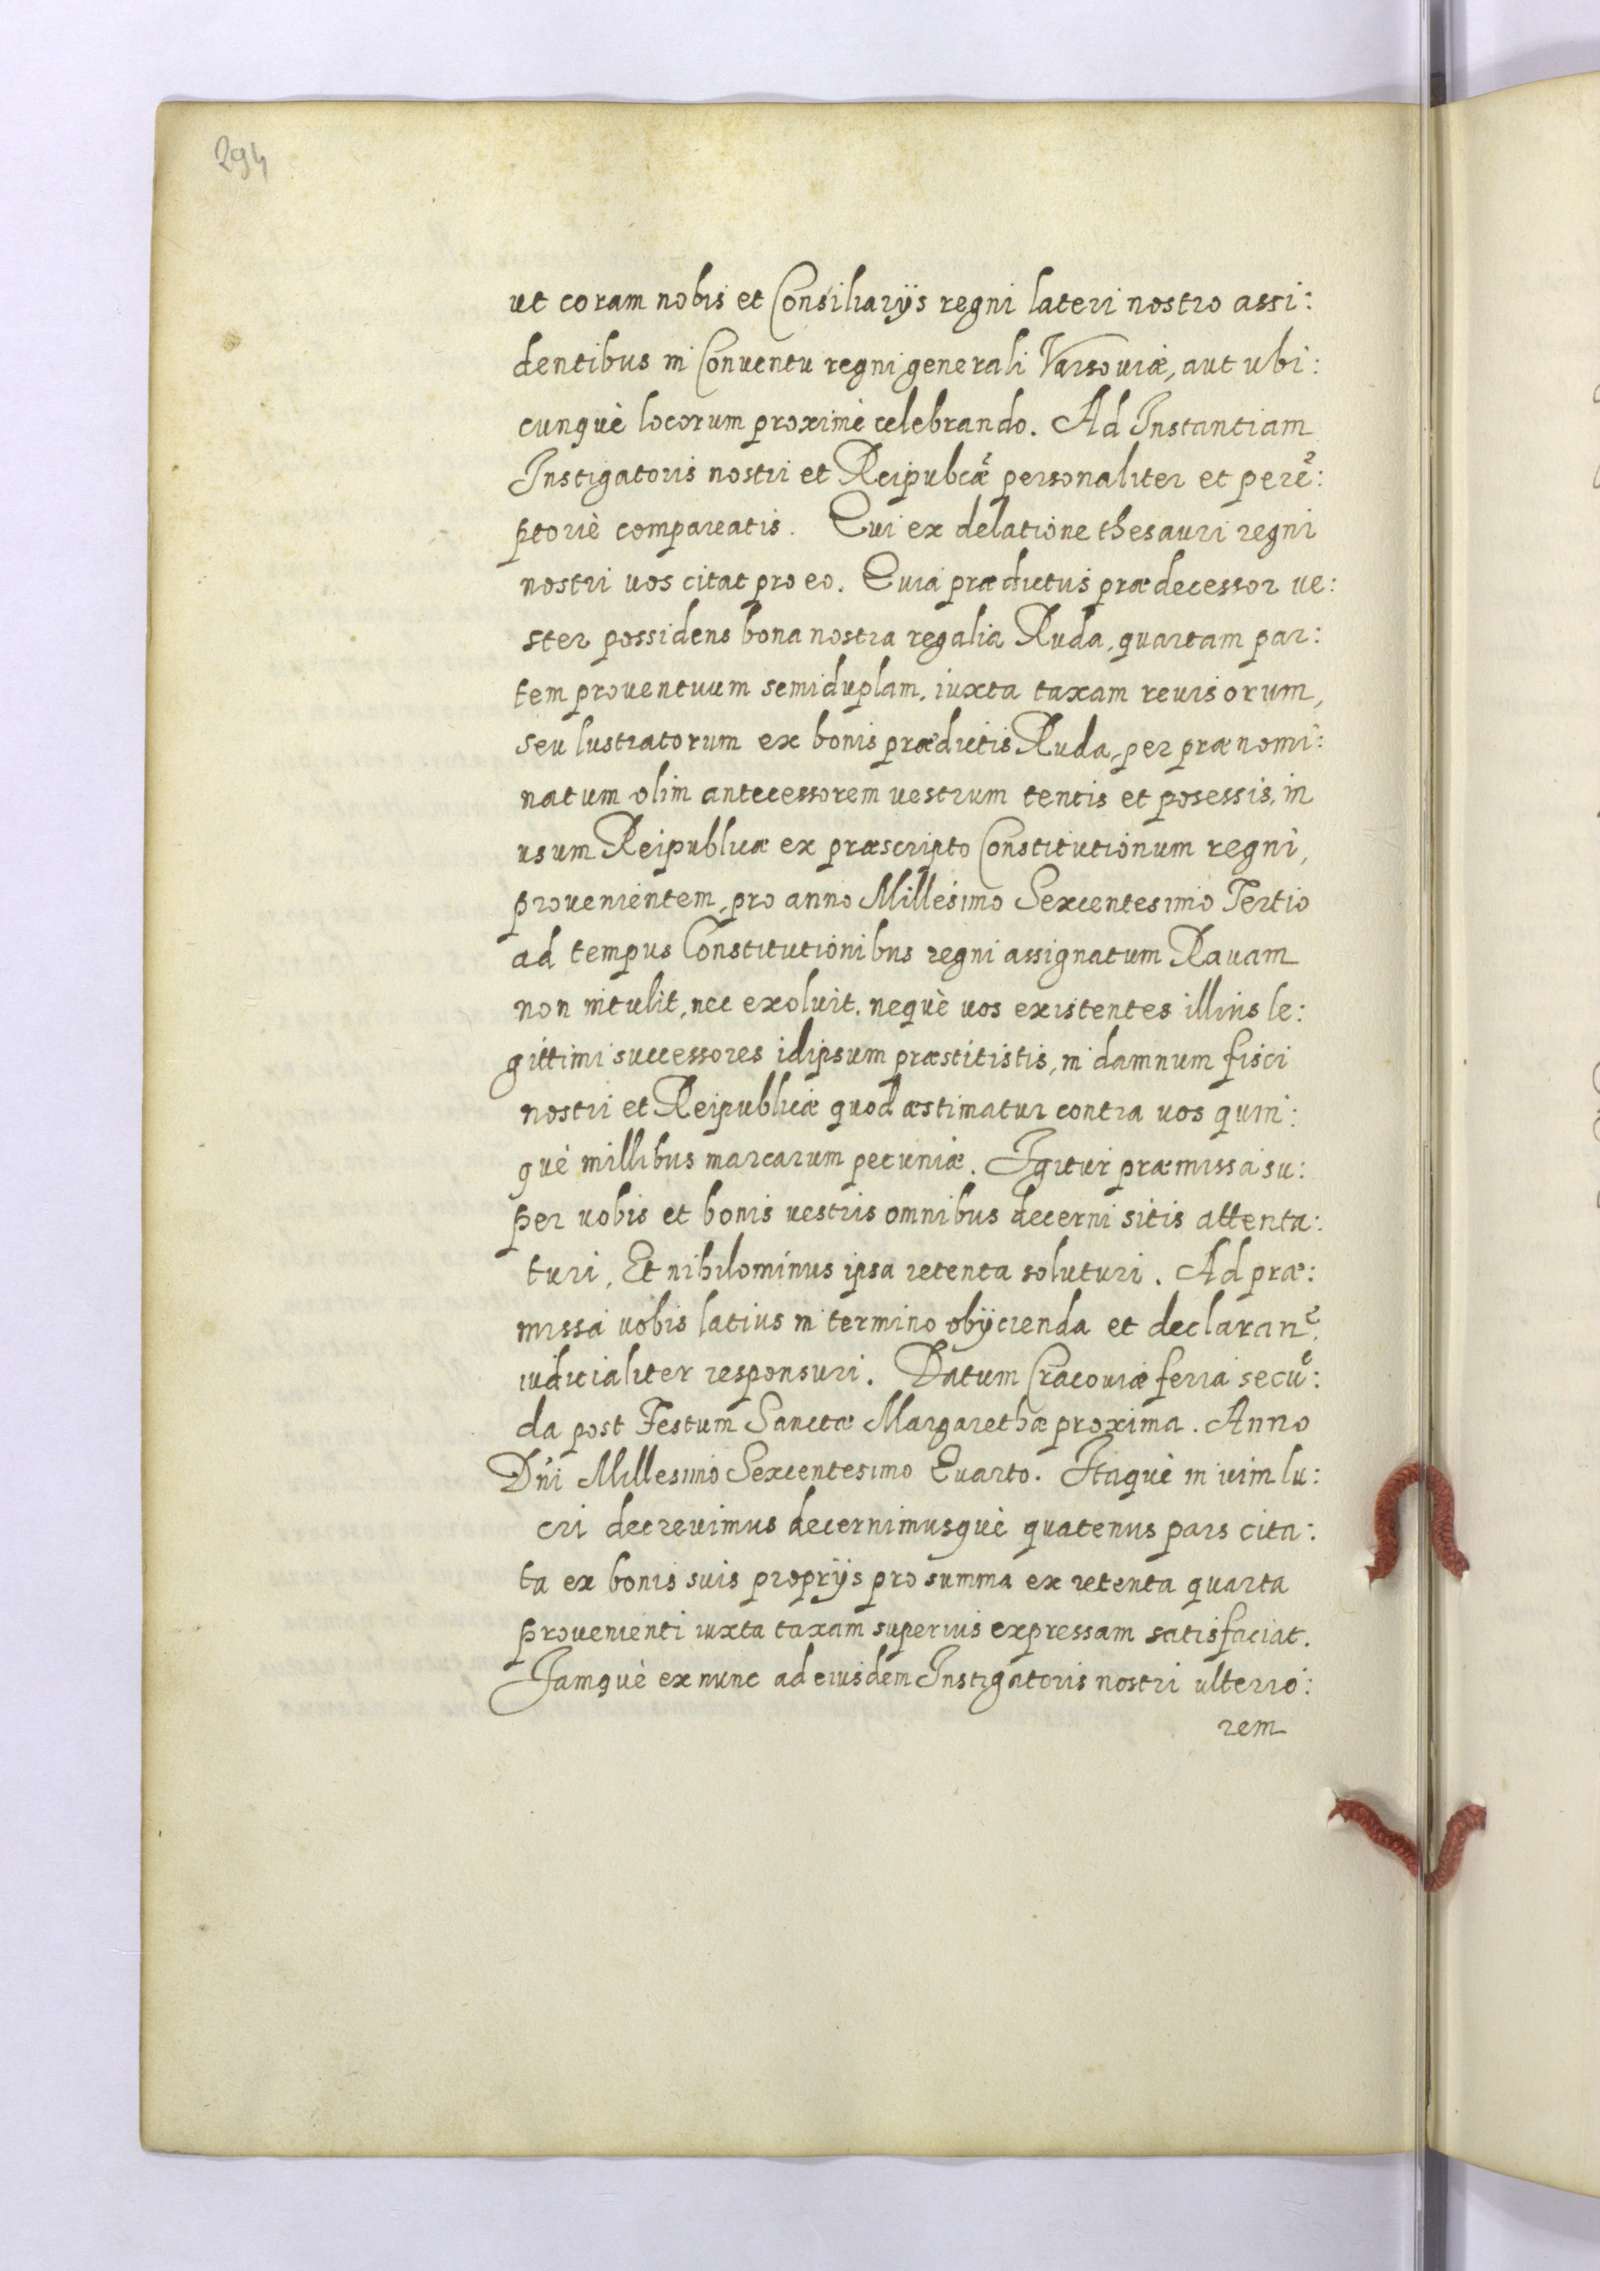 294
ut coram nobis et Consiliarijs regni lateri nostro assi:
dentibus in Conuentu regni generali Varsouiæ, aut ubi:
cunquè locorum proximè celebrando. Ad Instantiam
Instigatoris nostri et Reipubcæ̃ personaliter et perẽ:
ptoriè compareatis. Qui ex delatione thesauri regni
nostri uos citat pro eo. Quia prædictus prædecessor ue:
ster possidens bona nostra regalia Ruda, quartam par:
tem prouentuum semiduplam, iuxta taxam reuisorum,
seu lustratorum ex bonis prædictis Ruda, per prænomi:
natum olim antecessorem uestrum tentis et posessis, in
usum Reipublicæ ex præscripto Constitutionum regni,
prouenientem, pro anno Millesimo Sexcentesimo Tertio
ad tempus Constitutionibus regni assignatum Rauam
non intulit, nec exoluit, nequè uos existentes illius le:
gittimi successores idipsum præstitistis, in damnum fisci
nostri et Reipublicæ quod æstimatur contra uos quin:
què millibus marcarum pecuniæ. Igitur præmissa su:
per uobis et bonis uestris omnibus decerni sitis attenta:
turi, Et nihilominus ipsa retenta soluturi. Ad præ:
missa uobis latius in termino obijcienda et declarañ
iudicialiter responsuri. Datum Cracouiæ feria secũ:
da post Festum Sanctæ Margarethæ proxima. Anno
Dñi Millesimo Sexcentesimo Quarto. Itaquè in uim lu:
cri decreuimus decernimusquè quatenus pars cita:
ta ex bonis suis proprijs pro summa ex retenta quarta
prouenienti iuxta taxam superius expressam satisfaciat.
Iamquè ex nunc ad eiusdem Instigatoris nostri ulterio:
rem